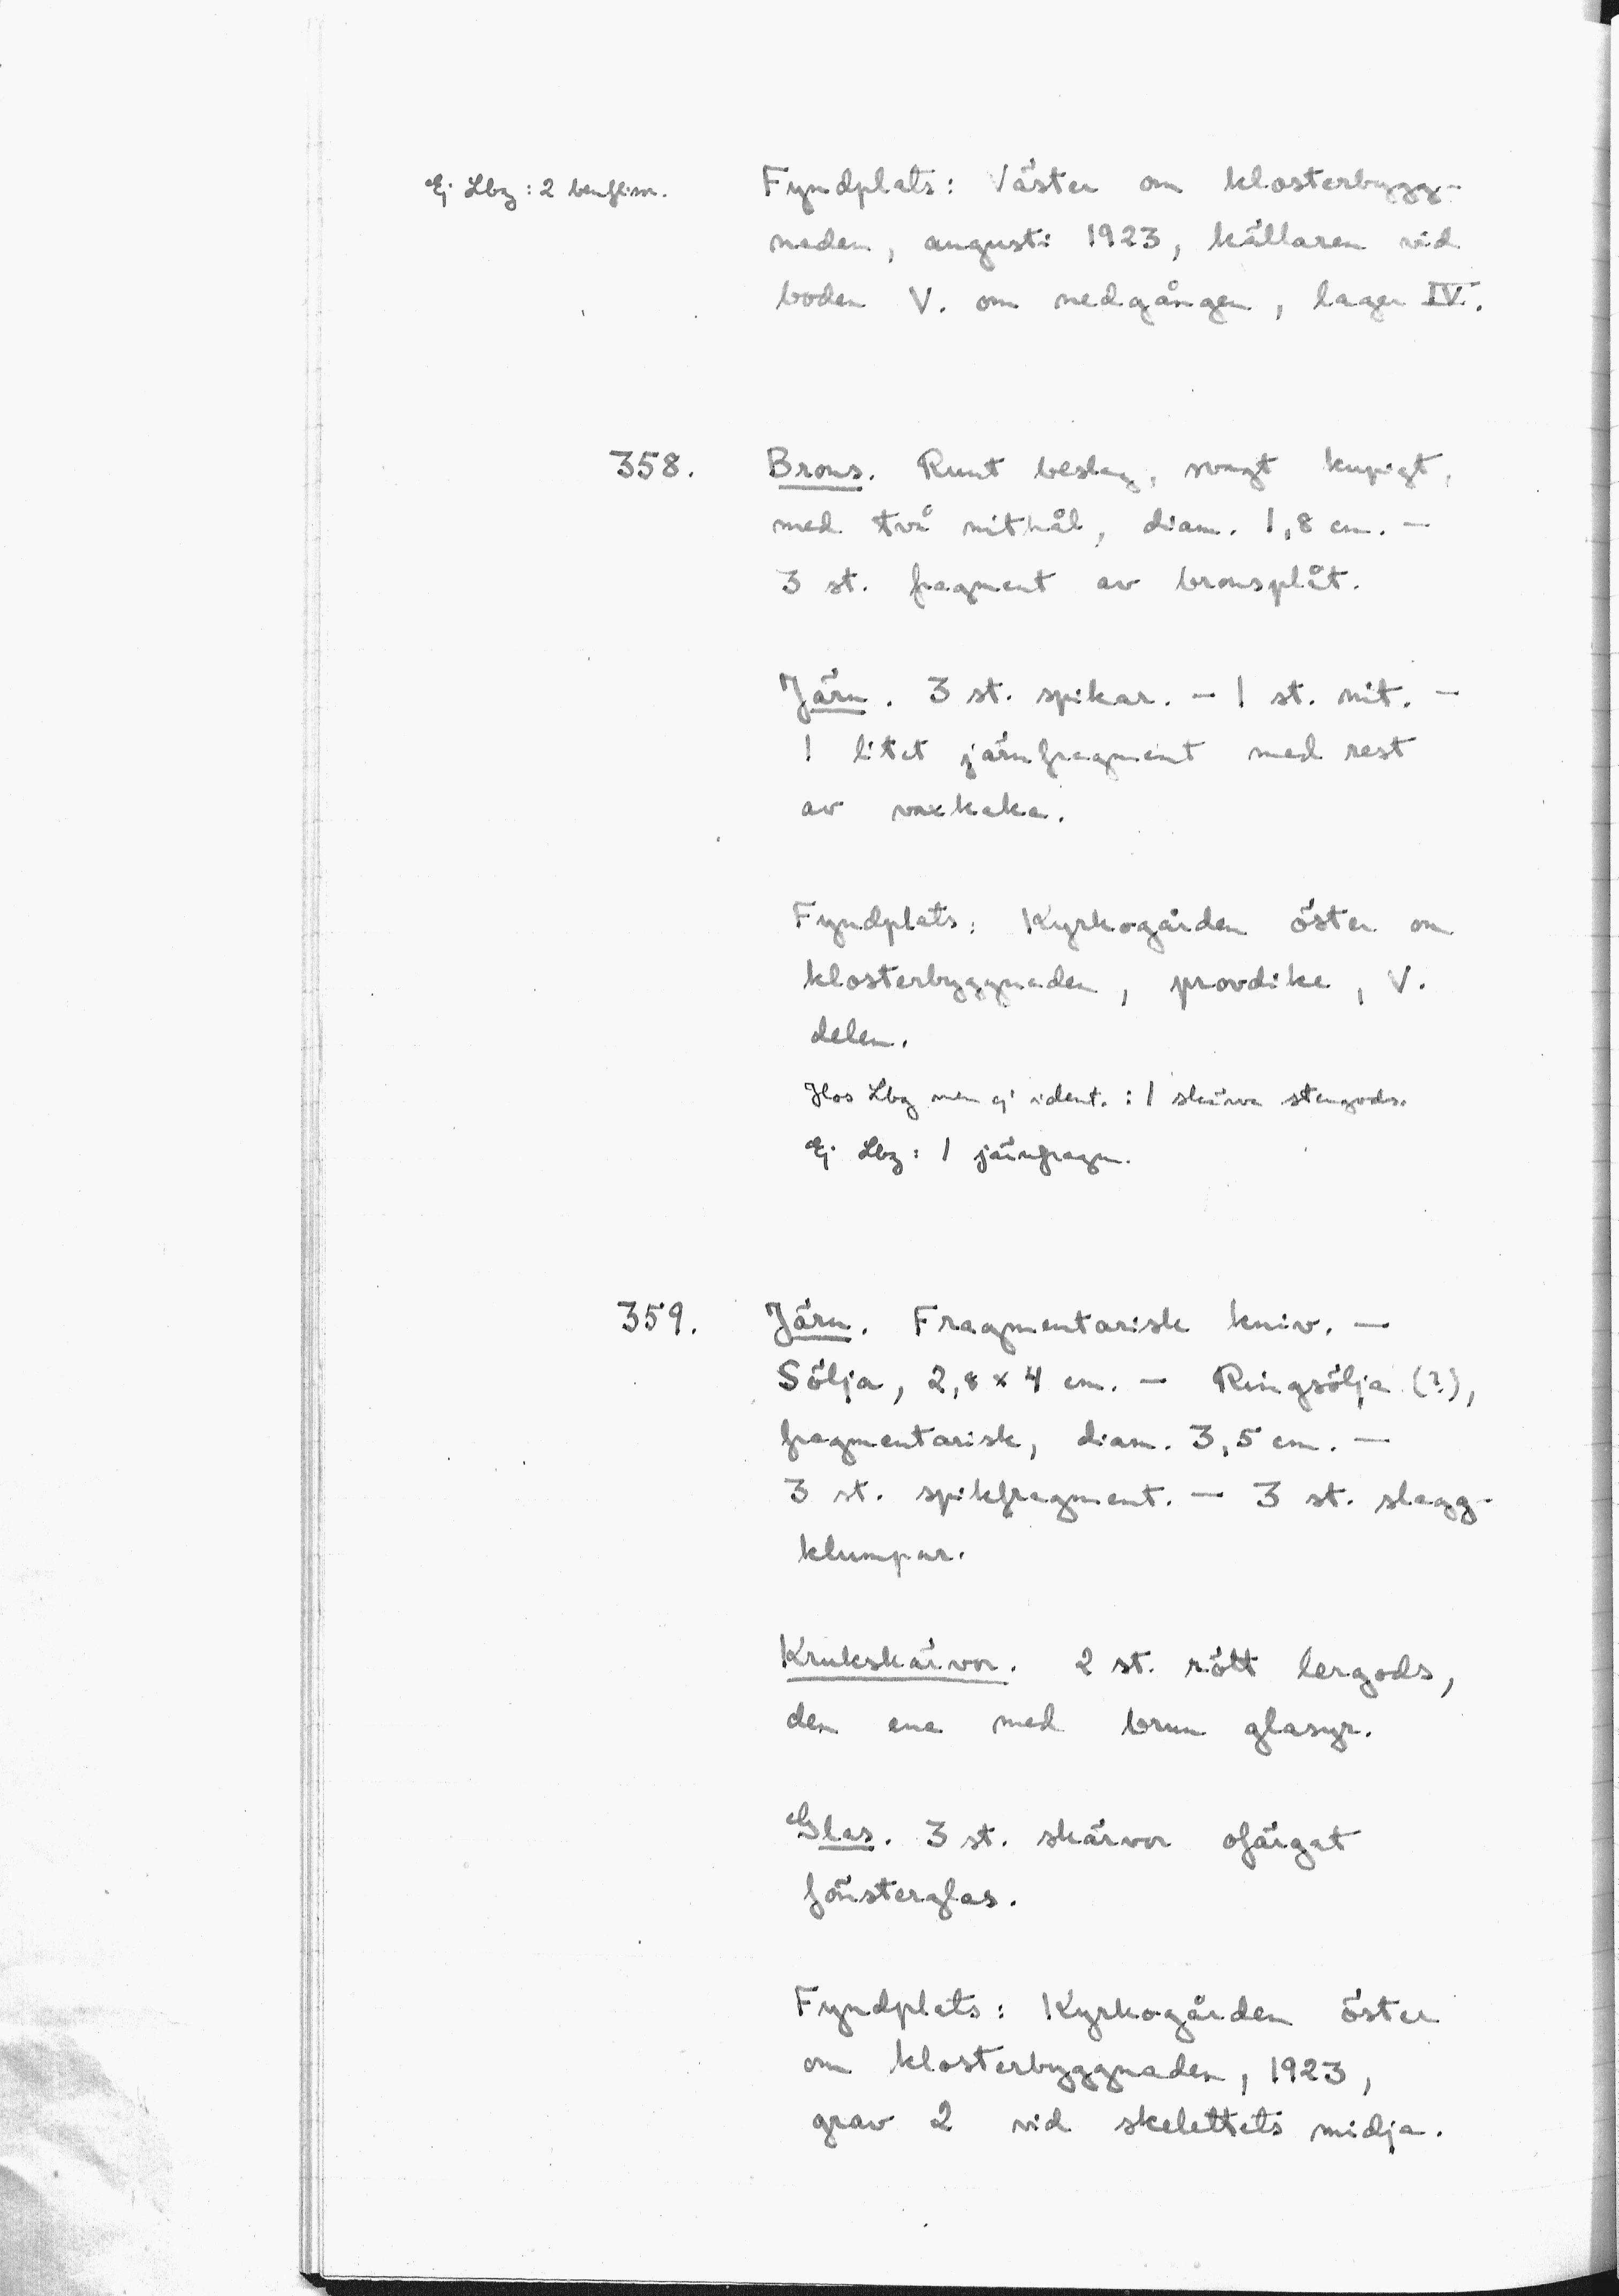 Ej Lbg: 2 benfliser.
Fyndplats: Väster om klosterbygg-
naden, augusti 1923, källaren vid
boden V. om nedgången, lager IV.
358. Brons. Runt beslag, svagt kupigt,
med två nithål, diam. 1,8 cm. —
3 st. fragment av bronsplåt.
Järn. 3 st. spikar. — 1 st. nit. —
1 litet järnfragment med rest
av vaxkaka.
Fyndplats: Kyrkogården öster om
klosterbyggnaden, provdike, V.
delen.
Hos Lbg men ej ident.: 1 skärva stengods.
Ej Lbg: 1 järnfragm.
359. Järn. Fragmentarisk kniv. —
Sölja, 2,8 x 4 cm. — Ringsölja (?),
fragmentarisk, diam. 3,5 cm. —
3 st. spikfragment. — 3 st. slagg-
klumpar.
Krukskärvor. 2 st. rött lergods,
den ena med brun glasyr.
Glas. 3 st. skärvor ofärgat
fönsterglas.
Fyndplats: Kyrkogården öster
om klosterbyggnaden, 1923,
grav 2 vid skelettets midja.